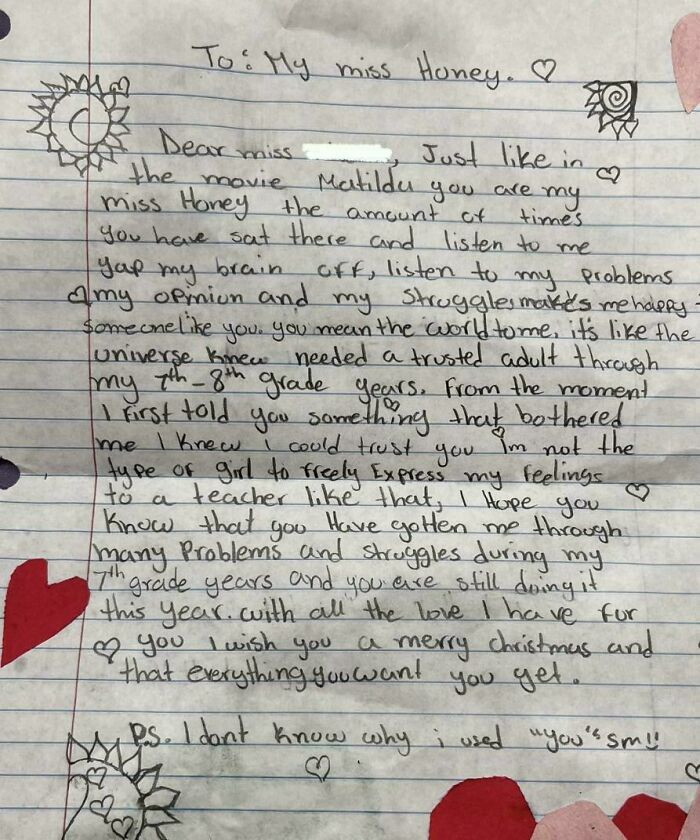 To: My miss Honey. ♡
Dear miss , Just like in
the movie Matilda you are my
miss Honey the amount of times
you have sat there and listen to me
yap my brain off, listen to my problems
my opinion and my struggles makes me happy -
someone like you. you mean the world to me, it's like the
universe knew needed a trusted adult through
my 7th - 8th grade years. From the moment
I first told you something that bothered
me I knew I could trust you I'm not the
type of girl to freely Express my feelings
to a teacher like that, I Hope you
know that you Have gotten me through
many Problems and struggles during my
7th grade years and you are still doing it
this year. with all the love I have for
you I wish you a merry christmas and
that everything you want you get.
P.S. I dont know why i used "you's sm!!